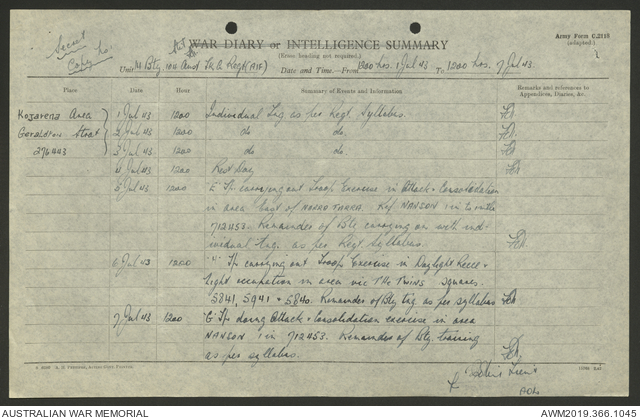 Secret
Copy No.
WAR DIARY or INTELLIGENCE SUMMARY
(Erase heading not required).
Army Form C.2118
(adapted.)
Unit Bty Aust Tk A Regt (AIF) Date and Time—From 1200 hrs. 1 Jul 43. To 1200 hrs. 7 Jul 43.
Place Date Hour Summary of Events and Information Remarks and references to Appendices, Diaries, &c.
Kojarena Area 1 Jul 43 1200 Individual Tng as per Regt Syllabus.
Geraldton Strat 2 Jul 43 1200 do do.
276443 3 Jul 43 1200 do do.
4 Jul 43 1200 Rest Day
5 Jul 43 1200 "E" Tp carrying out Troop Exercise in Attack & Consolidation
in area East of NORRO TARRA. Ref NANSON 1 in to mile
712453. Remainder of Bty carrying on with ind-
ividual Tng. as per Regt Syllabus.
6 Jul 43 1200 Tp carrying out Troop Exercise in Daylight Recce &
Night occupation in area via THE TWINS squares.
5841, 5941 & 5840. Remainder of Bty tng as per syllabus
7 Jul 43 1200 "G" Tp doing Attack & Consolidation exercise in area
NANSON 1 in 712453. Remainder of Bty. training
as per syllabus.
AUSTRALIAN WAR MEMORIAL
AWM2019.366.1045